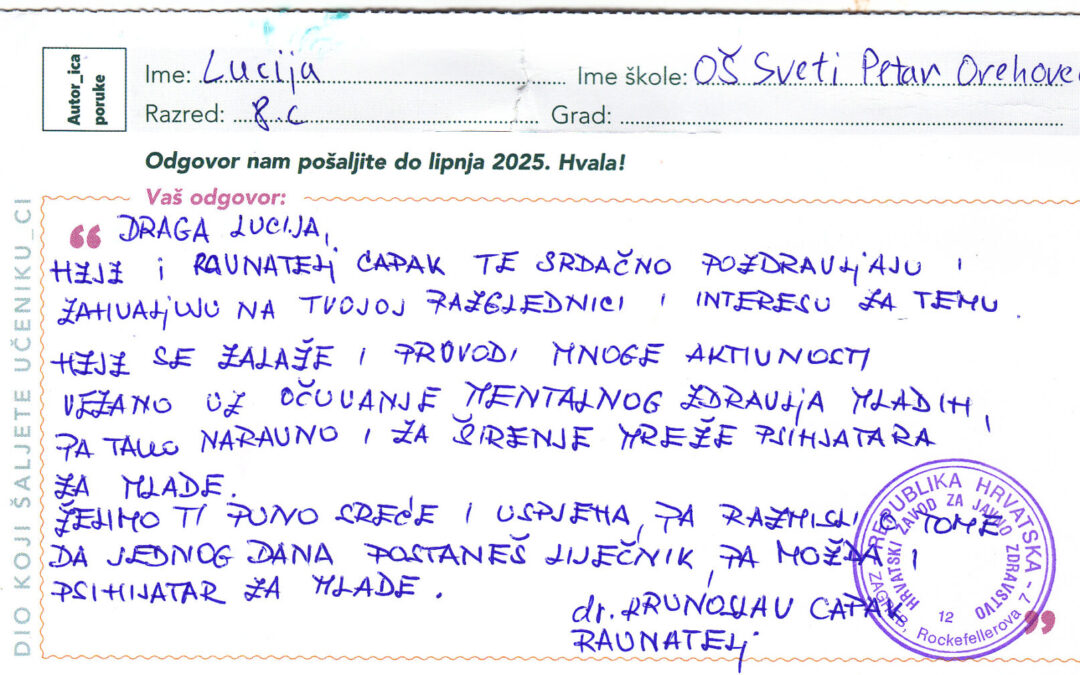 Autor_ica poruke
Ime: Lucija Ime škole: OŠ Sveti Petar Orehovec
Razred: 8.c Grad:
Odgovor nam pošaljite do lipnja 2025. Hvala!
Vaš odgovor:
DIO KOJI ŠALJETE UČENIKU_CI
“ DRAGA LUCIJA,
HZJZ i RAVNATELJ CAPAK TE SRDAČNO POZDRAVLJAJU I
ZAHVALJUJU NA TVOJOJ RAZGLEDNICI I INTERESU ZA TEMU.
HZJZ SE ZALAŽE I PROVODI MNOGE AKTIVNOSTI
VEZANO UZ OČUVANJE MENTALNOG ZDRAVLJA MLADIH,
PA TAKO NARAVNO I ZA ŠIRENJE MREŽE PSIHIJATARA
ZA MLADE.
ŽELIMO TI PUNO SREĆE I USPJEHA, PA RAZMISLI O TOME
DA JEDNOG DANA POSTANEŠ LIJEČNIK, PA MOŽDA I
PSIHIJATAR ZA MLADE.
dr. KRUNOSLAV CAPAK
RAVNATELJ
”
REPUBLIKA HRVATSKA
HRVATSKI ZAVOD ZA JAVNO ZDRAVSTVO
12
ZAGREB, Rockefellerova 7